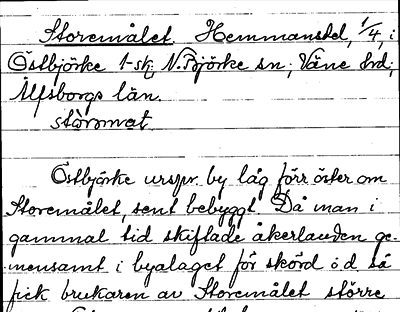 Storemålet. Hemmansdel, 1/4, i
Östbjörke 1-sk, N. Björke sn, Väne hd,
Älfsborgs län.
Östbjörke urspr. by låg förr öster om
Storemålet, sent bebyggt. Då man i
gammal tid skiftade åkerlanden ge-
mensamt i byalaget för skörd o.d. så
fick brukaren av Storemålet större